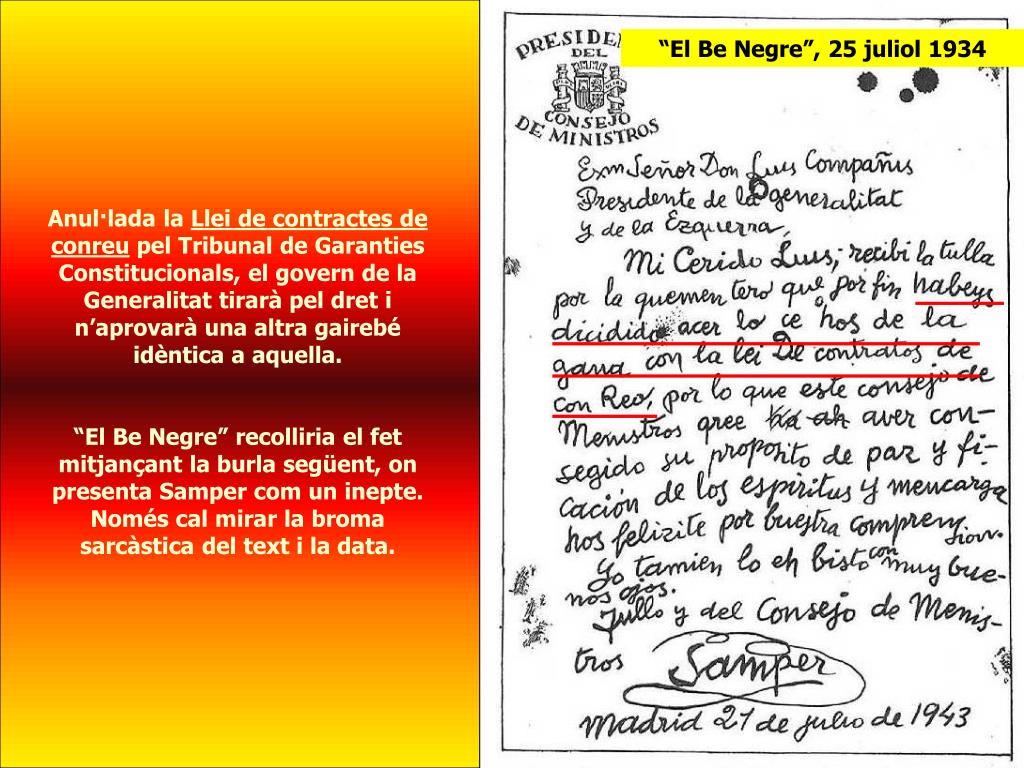 Anul·lada la Llei de contractes de
conreu pel Tribunal de Garanties
Constitucionals, el govern de la
Generalitat tirarà pel dret i
n’aprovarà una altra gairebé
idèntica a aquella.
“El Be Negre” recolliria el fet
mitjançant la burla següent, on
presenta Samper com un inepte.
Només cal mirar la broma
sarcàstica del text i la data.
“El Be Negre”, 25 juliol 1934
DEL
CONSEJO
DE MINISTROS
Exm Señor Don Luis Compañus
Presidente de la generalitat
y de la Ezquerra,
Mi Cerido Luis; recibi la tulla
por la quemen tero que por fin habeys
dicidido acer lo ce hos de la
gana con la lei De contratos de
con Reo, por lo que este consejo de
Menistros qree aver con-
segido su proposito de paz y fi-
cación de los espiritus y mencarga
hos felizite por buestra comprensiion.
Yo tamien lo eh bisto con muy bue-
nos ojos.
Tullo y del Consejo de Menis-
tros Samper
Madrid 21 de julio de 1943